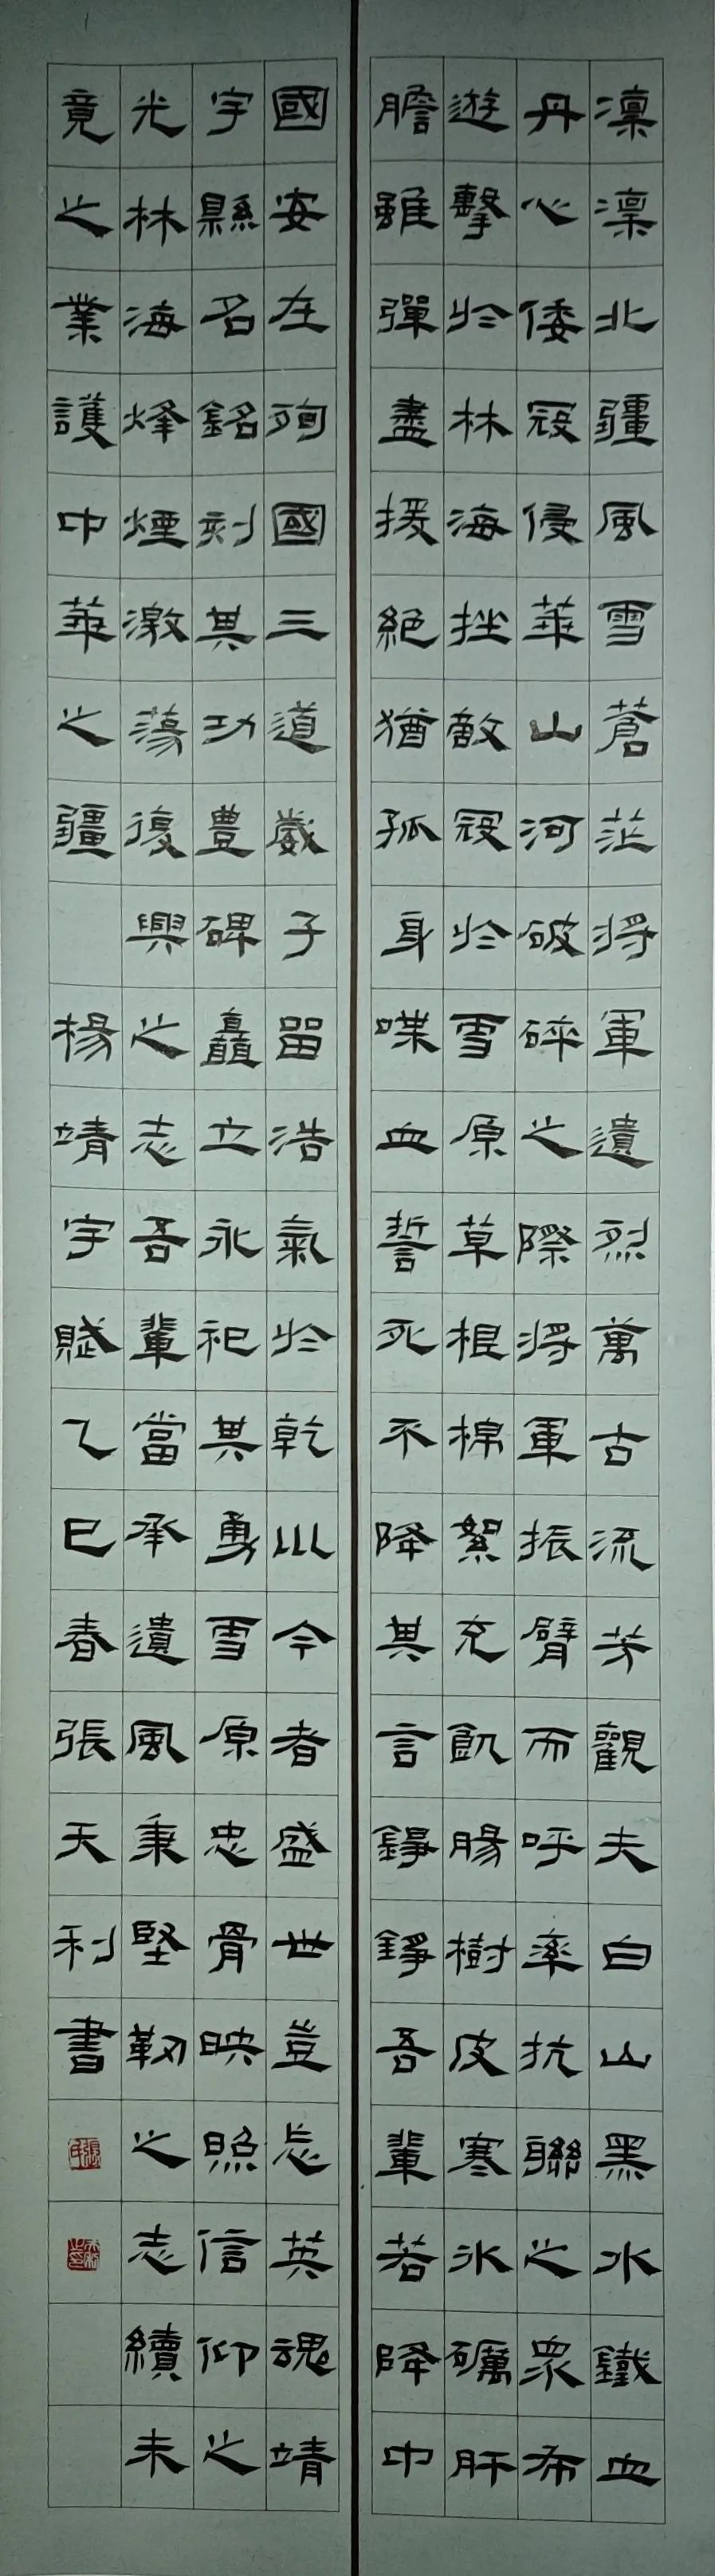 凜凜北疆風雪蒼茫將軍遺烈萬古流芳觀夫白山黑水鐵血
丹心倭寇侵華山河破碎之際將軍振臂而呼率抗聯之眾布
遊擊於林海挫敵寇於雪原草根棉絮充飢腸樹皮寒冰礪肝
膽雖彈盡援絕猶孤身喋血誓死不降其言錚錚吾輩若降中
國安在殉國三道崴子留浩氣於乾川今者盛世豈忘英魂靖
宇縣名銘刻其功豐碑矗立永祀其勇雪原忠骨映照信仰之
光林海烽煙激蕩復興之志吾輩當承遺風秉堅韌之志續未
竟之業護中華之疆 楊靖宇賦乙巳春張天利書